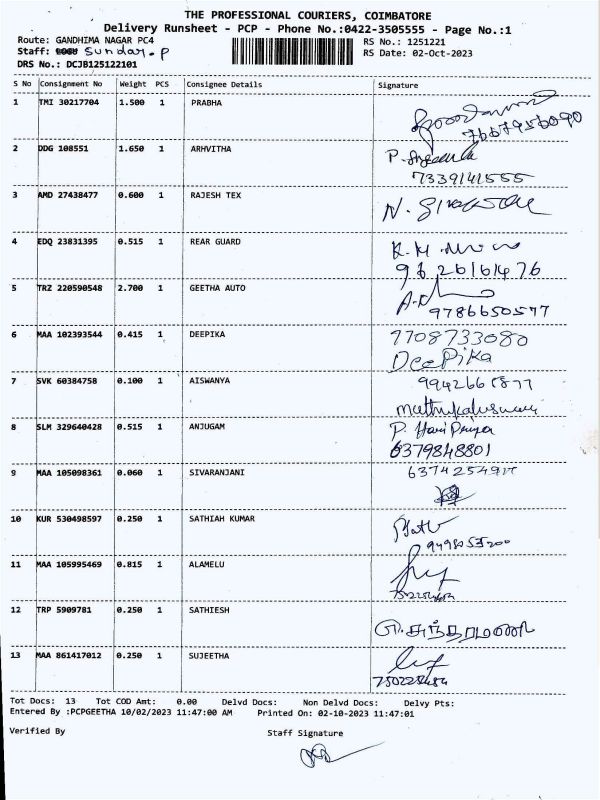 THE PROFESSIONAL COURIERS, COIMBATORE
Delivery Runsheet - PCP - Phone No.:0422-3505555 - Page No.:1
Route: GANDHIMA NAGAR PC4 RS No.: 1251221
Staff: Sundar.P RS Date: 02-Oct-2023
DRS No.: DCJB125122101
S No Consignment No Weight PCS Consignee Details Signature
1 TMI 30217704 1.500 1 PRABHA
7667956090
2 DDG 108551 1.650 1 ARHVITHA P.
7339141555
3 AMD 27438477 0.600 1 RAJESH TEX N.
4 EDQ 23831395 0.515 1 REAR GUARD K.M.
9626161476
5 TRZ 220590548 2.700 1 GEETHA AUTO
9786650577
6 MAA 102393544 0.415 1 DEEPIKA 7708733080
DeePika
7 SVK 60384758 0.100 1 AISWANYA
8 SLM 329640428 0.515 1 ANJUGAM P. Hari Priya
6379848801
9 MAA 105098361 0.060 1 SIVARANJANI
10 KUR 530498597 0.250 1 SATHIAH KUMAR
11 MAA 105995469 0.815 1 ALAMELU
12 TRP 5909781 0.250 1 SATHIESH
13 MAA 861417012 0.250 1 SUJEETHA
Tot Docs: 13 Tot COD Amt: 0.00 Delvd Docs: Non Delvd Docs: Delvy Pts:
Entered By :PCPGEETHA 10/02/2023 11:47:00 AM Printed On: 02-10-2023 11:47:01
Verified By Staff Signature